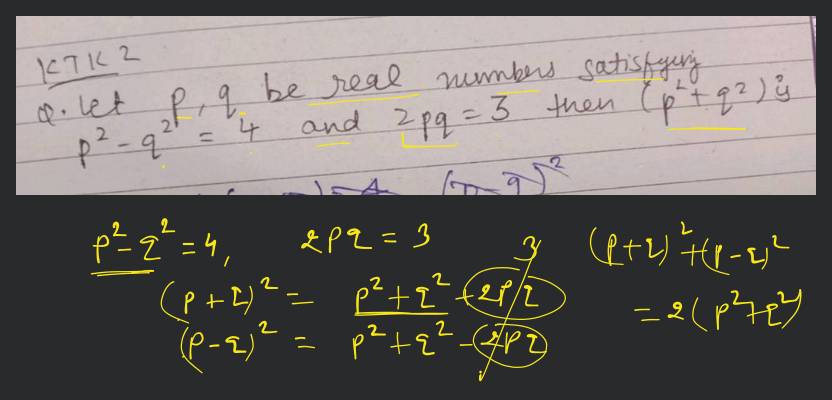 KTK 2
Q. Let p, q be real numbers satisfying
p² - q² = 4 and 2pq = 3 then (p² + q²) is
(p - q)²
p² - q² = 4, 2pq = 3
(p + q)² = p² + q² + 2pq 3
(p - q)² = p² + q² - 2pq
(p + q)² + (p - q)²
= 2(p² + q²)